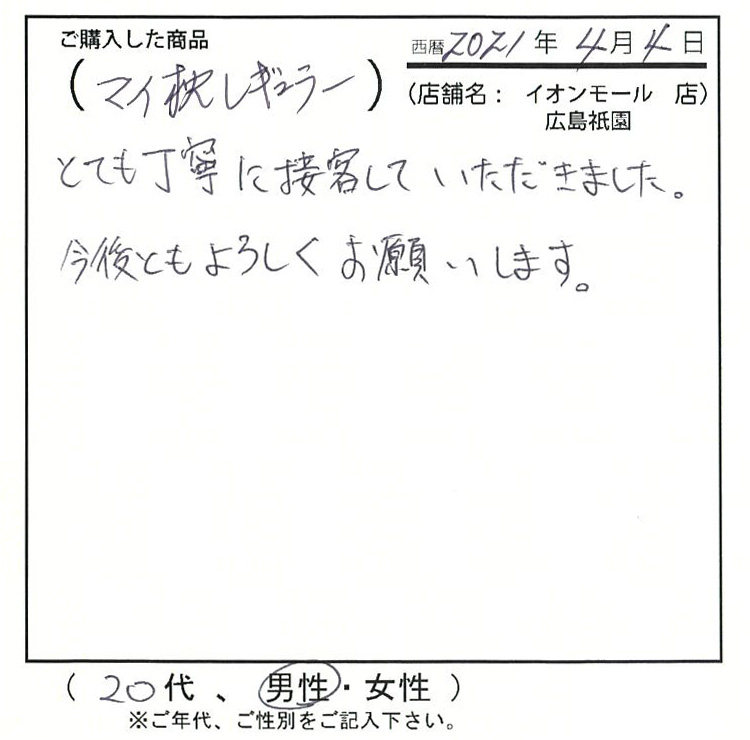 ご購入した商品
西暦2021年 4月4日
(マイ枕レギュラー)
(店舗名: イオンモール 店)
広島祇園
とても丁寧に接客していただきました。
今後ともよろしくお願いします。
(20代、男性・女性)
※ご年代、ご性別をご記入下さい。